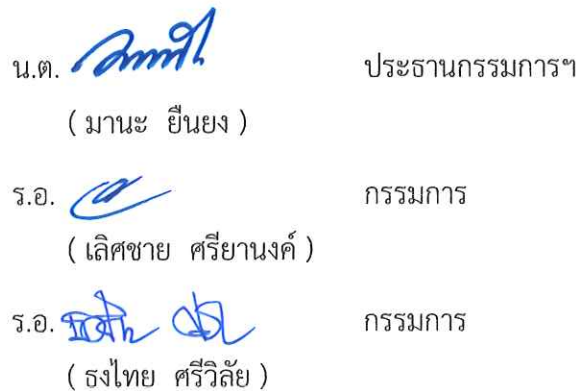 น.ต. ประธานกรรมการฯ
( มานะ ยืนยง )
ร.อ. กรรมการ
( เลิศชาย ศรียานงค์ )
ร.อ. กรรมการ
( ธงไทย ศรีวิลัย )